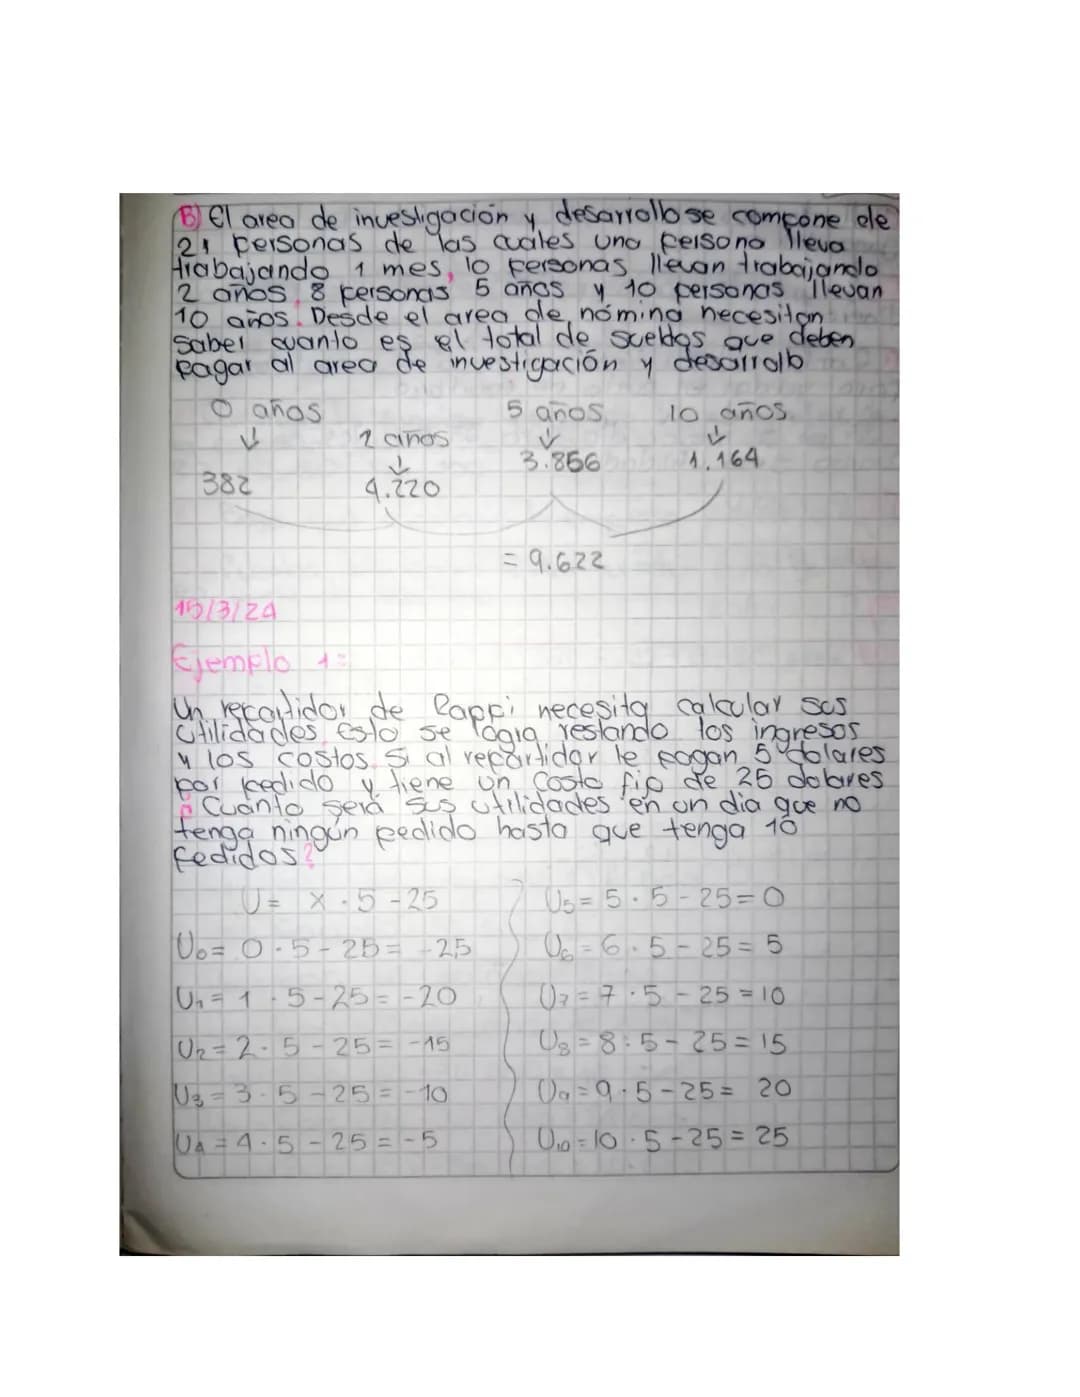 B) El area de investigación y desarrollo se compone de
21 personas de las cuales una persona lleva
trabajando 1 mes, 10 personas llevan trabajando
2 años, 8 personas 5 años y 10 personas llevan
10 años. Desde el area de nómina necesitan
saber cuanto es el total de sueldos que deben
pagar al area de investigación y desarrollo
0 años 5 años 10 años
2 años
382 4.220 3.856 1.164
= 9.622
15/3/24
Ejemplo 1=
Un repartidor de Rappi necesita calcular sus
utilidades. Esto se logra restando los ingresos
y los costos. Si al repartidor le pagan 5 dolares
por pedido y tiene un costo fijo de 25 dolares
¿Cuanto será sus utilidades en un dia que no
tenga ningún pedido hasta que tenga 10
pedidos?
U = x · 5 - 25
U0 = 0 · 5 - 25 = -25
U1 = 1 · 5 - 25 = -20
U2 = 2 · 5 - 25 = -15
U3 = 3 · 5 - 25 = -10
U4 = 4 · 5 - 25 = -5
U5 = 5 · 5 - 25 = 0
U6 = 6 · 5 - 25 = 5
U7 = 7 · 5 - 25 = 10
U8 = 8 · 5 - 25 = 15
U9 = 9 · 5 - 25 = 20
U10 = 10 · 5 - 25 = 25